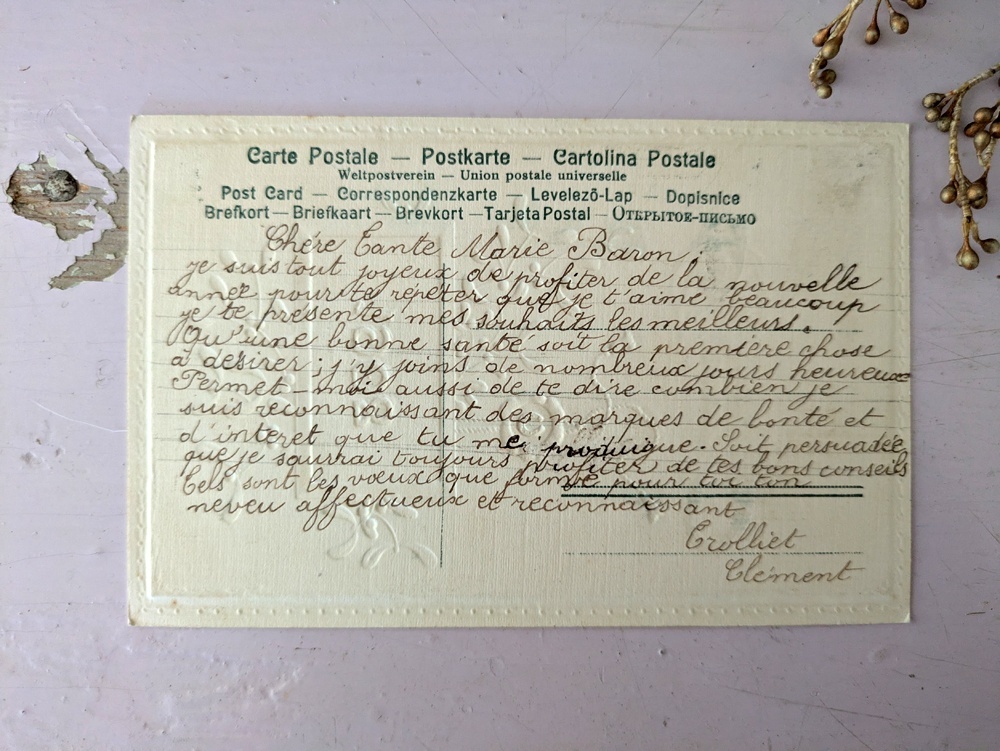 Carte Postale — Postkarte — Cartolina Postale
Weltpostverein — Union postale universelle
Post Card — Correspondenzkarte — Levelező-Lap — Dopisnice
Brefkort — Briefkaart — Brevkort — Tarjeta Postal — Открытое-письмо
Chére Tante Marie Baron,
je suis tout joyeux de profiter de la nouvelle
année pour te répéter que je t'aime beaucoup
je te présente mes souhaits les meilleurs.
Qu'une bonne santé soit la première chose
à désirer ; j'y joins de nombreux jours heureux
Permet-moi aussi de te dire combien je
suis reconnaissant des marques de bonté et
d'interet que tu me prodigue. Soit persuadée
que je saurrai toujours profiter de tes bons conseils
Tels sont les vœux que forme pour toi ton
neveu affectueux et reconnaissant
Trolliet
Clément